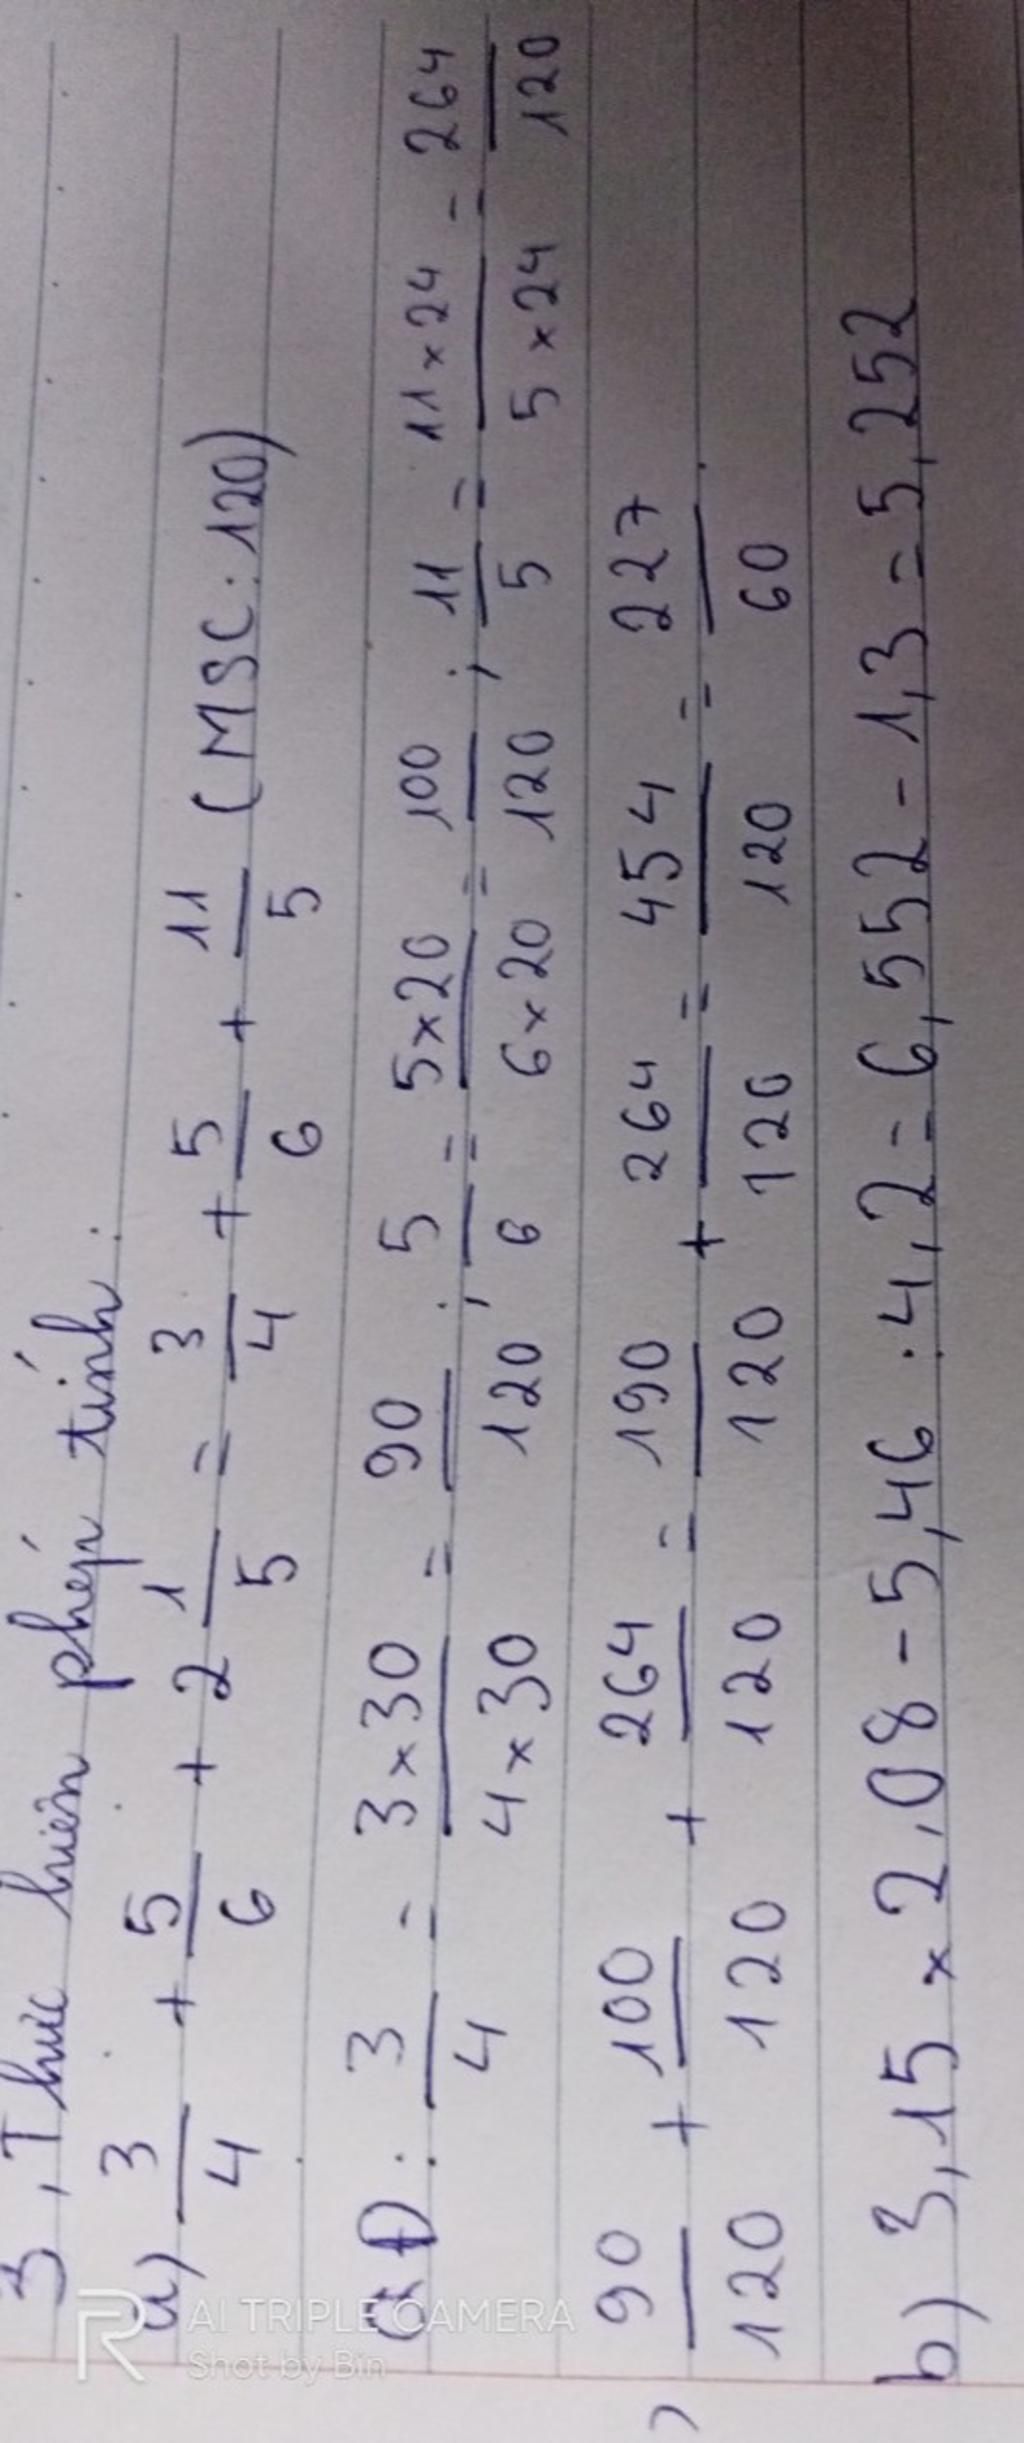 3, Thực hiện phép tính:
a) 3/4 + 5/6 + 2 1/5 = 3/4 + 5/6 + 11/5 (MSC: 120)
QĐ: 3/4 = 3×30/4×30 = 90/120; 5/6 = 5×20/6×20 = 100/120; 11/5 = 11×24/5×24 = 264/120
90/120 + 100/120 + 264/120 = 190/120 + 264/120 = 454/120 = 227/60
b) 3,15 × 2,08 - 5,46 : 4,2 = 6,552 - 1,3 = 5,252
AI TRIPLE CAMERA
Shot by Bin